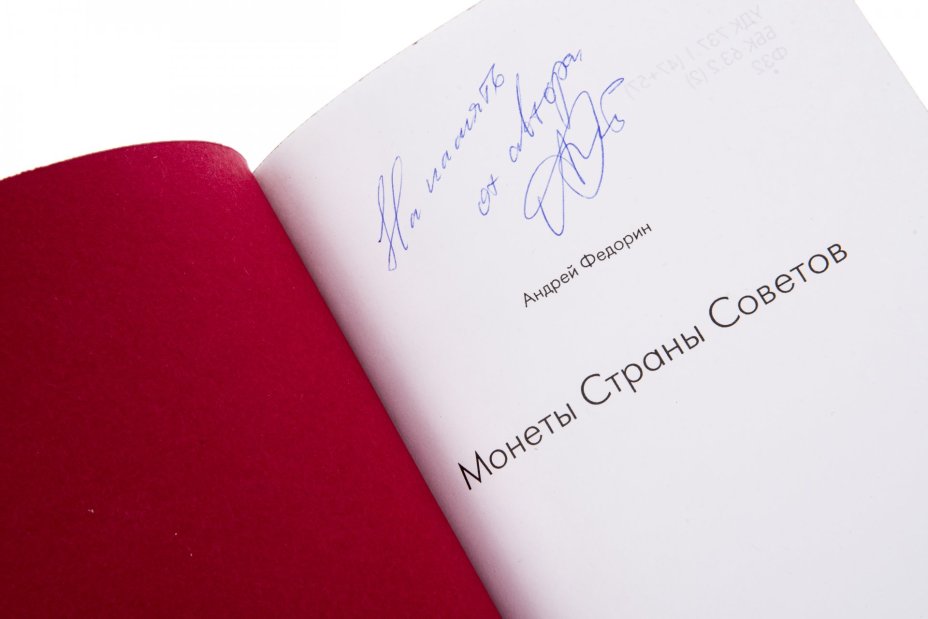 На память
от автора
Андрей Федорин
Монеты Страны Советов
УДК 737.1 (47+57)
ББК 63.2 (2)
Ф32